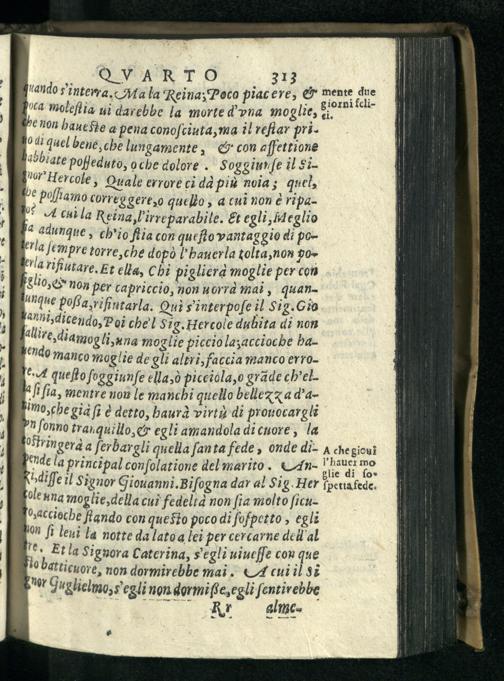 QVARTO 313
quando s'interra. Ma la Reina; Poco piacere, &
poca molestia ui darebbe la morte d'vna moglie,
che non haueste a pena conosciuta, ma il restar pri-
uo di quel bene, che lungamente, & con affettione
habbiate posseduto, o che dolore. Soggiunse il Si-
gnor Hercole, Quale errore ci dà più noia; quel,
che possiamo correggere, o quello, a cui non è ripa-
ro? A cui la Reina, l'irreparabile. Et egli, Meglio
sia adunque, ch'io stia con questo vantaggio di po-
terla sempre torre, che dopò l'hauerla tolta, non po-
terla rifiutare. Et ella, Chi piglierà moglie per con
siglio, & non per capriccio, non uorrà mai, quan-
tunque possa, rifiutarla. Qui s'interpose il Sig. Gio
uanni, dicendo, Poi che'l Sig. Hercole dubita di non
fallire, diamogli, una moglie picciola; accioche ha-
uendo manco moglie de gli altri, faccia manco erro-
re. A questo soggiunse ella, ò picciola, o grãde ch'el-
la si sia, mentre non le manchi quello bellezza d'a-
nimo, che già si è detto, haurà virtù di prouocargli
vn sonno tranquillo, & egli amandola di cuore, la
costringerà a serbargli quella santa fede, onde di-
pende la principal consolatione del marito. An-
zi, disse il Signor Giouanni. Bisogna dar al Sig. Her
cole una moglie, della cui fedeltà non sia molto sicu-
ro, accioche stando con questo poco di sospetto, egli
non si leui la notte da lato a lei per cercarne dell'al
tre. Et la Signora Caterina, s'egli uiuesse con que
sto batticuore, non dormirebbe mai. A cui il Si
gnor Guglielmo, s'egli non dormisse, egli sentirebbe
Rr alme-
mente due
giorni feli-
ci.
A che gioui
l'hauer mo
glie di so-
spetta fede.